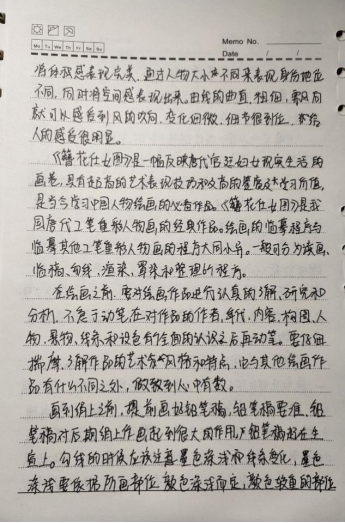 Memo No.
Mo Tu We Th Fr Sa Su
Date / /
得体积感表现完美。通过人物大小不同来表现身份地位
不同,同时将空间感表现出来。曲线的曲直、粗细,飘向
就可以感受到风的吹向,变化细微,细节很到位,带给
人的感受很明显。
《簪花仕女图》是一幅反映唐代宫廷妇女现实生活的
画卷,具有超高的艺术表现技力和极高的鉴赏及学习价值,
是当今学习中国人物绘画的必备作品。《簪花仕女图》是我
国唐代工笔重彩人物画的经典作品。绘画的临摹程序与
临摹其他工笔重彩人物画的程序大同小异。一般可分为读画、
临稿、勾线、渲染、罩染和整理的程序。
在绘画之前,要对绘画作品进行认真的了解、研究和
分析,不急于动笔在对作品的作者、年代、内容、构图、人
物、景物、线条和设色有全面的认识之后再动笔。要仔细
揣摩,了解作品的艺术风格和特点,它与其他绘画作
品有什么不同之处,做到心中有数。
画到绢上之前,提前画好铅笔稿,铅笔稿要准,铅
笔稿对后期绢上作画起到很大的作用,铅笔稿拓在生
宣上。勾线的时候应该注意墨色深浅和线条变化,墨色
深浅要依据所画部位颜色深浅而定,颜色较重的部位